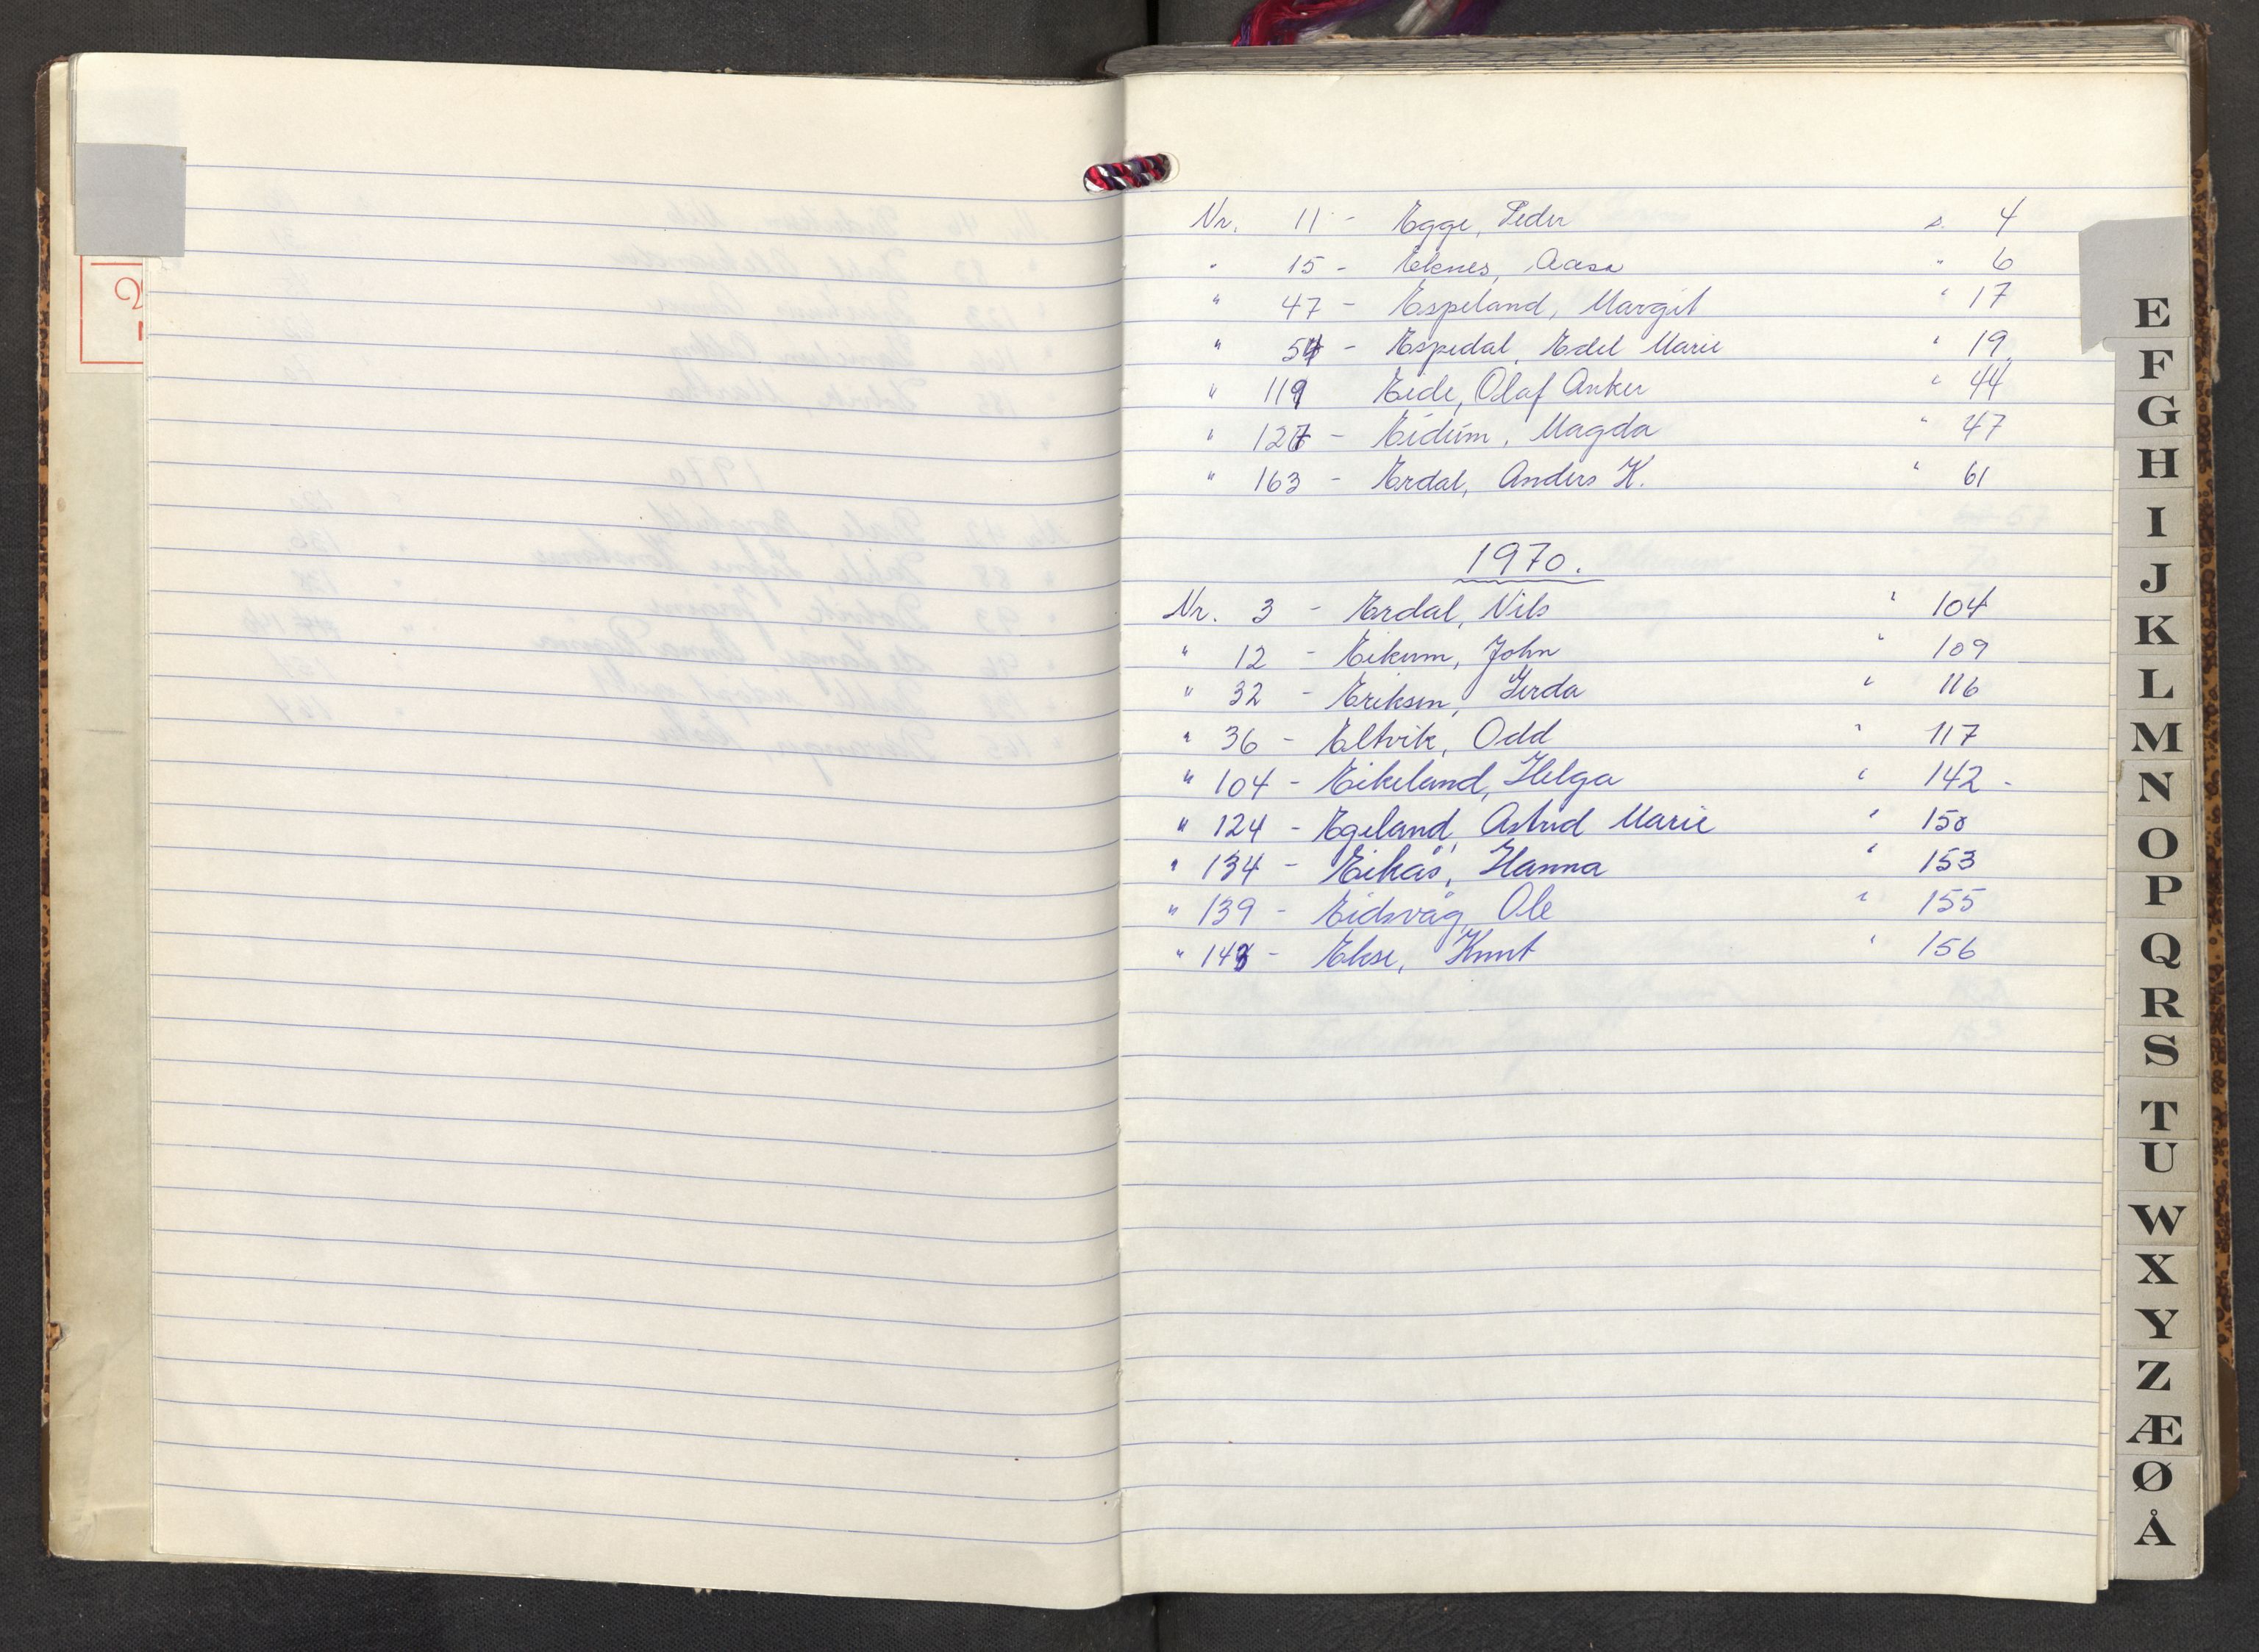 Nr. 11 - Egge, Peder s. 4
" 15 - Eknes, Aasa " 6
" 47 - Espeland, Margit " 17
" 54 - Espedal, Edel Marie " 19
" 119 Eide, Olaf Anker " 44
" 127 - Eidum, Magda " 47
" 163 - Erdal, Anders K. " 61
1970.
Nr. 3 - Erdal, Nils " 104
" 12 - Eikum, John " 109
" 32 - Eriksen, Gerda " 116
" 36 - Eltvik, Odd " 117
" 104 - Eikeland, Helga " 142 -
" 124 - Egeland, Astrid Marie " 150
" 134 - Eikås, Hanna " 153
" 139 - Eidsvåg, Ole " 155
" 143 - Ekse, Knut " 156
E
F
G
H
I
J
K
L
M
N
O
P
Q
R
S
T
U
W
X
Y
Z
Æ
Ø
Å